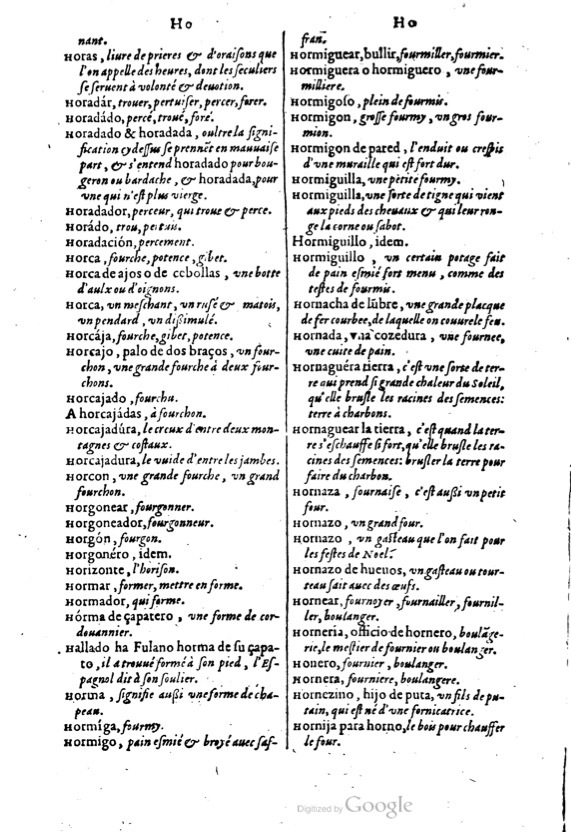 Ho
nant.
HORAS, liure de prieres & d'oraisons que
l'on appelle des heures, dont les seculiers
se seruent à volonté & deuotion.
HORADAR, trouer, pertuiser, percer, forer.
HORADÁDO, percé, troué, foré.
HORADADO & horadada, oultre la signi-
fication cydessus se prennẽt en mauuaise
part, & s'entend horadado pour bou-
geron ou bardache, & horadada, pour
vne qui n'est plus vierge.
HORADADOR, perceur, qui troue & perce.
HORÁDO, trou, pertuis.
HORADACIÓN, percement.
HORCA, fourche, potence, gibet.
HORCA de ajos o de cebollas, vne botte
d'aulx ou d'oignons.
HORCA, vn meschant, vn rusé & matois,
vn pendard, vn dissimulé.
HORCÁJA, fourche, gibet, potence.
HORCAJO, palo de dos braços, vn four-
chon, vne grande fourche à deux four-
chons.
HORCAJADO, fourchu.
A horcajádas, à fourchon.
HORCAJADÚRA, le creux d'entre deux mon-
tagnes & costaux.
HORCAJADURA, le vuide d'entre les jambes.
HORCON, vne grande fourche, vn grand
fourchon.
HORGONEAR, fourgonner.
HORGONEADOR, fourgonneur.
HORGÓN, fourgon.
HORGONÉRO, idem.
HORIZONTE, l'horison.
HORMAR, former, mettre en forme.
HORMADOR, qui forme.
HÓRMA de çapatero, vne forme de cor-
douannier.
Hallado ha Fulano horma de su çapa-
to, il a trouué forme à son pied, l'Es-
pagnol dit à son soulier.
HORMA, signifie aussi vne forme de cha-
peau.
HORMÍGA, fourmy.
HORMIGO, pain esmié & broyé auec saf-
Ho
fran.
HORMIGUEAR, bullir, fourmiller, fourmier.
HORMIGUERA o hormiguero, vne four-
milliere.
HORMIGOSO, plein de fourmis.
HORMIGON, grosse fourmy, vn gros four-
mion.
HORMIGON de pared, l'enduit ou crespis
d'vne muraille qui est fort dur.
HORMIGUILLA, vne petite fourmy.
HORMIGUILLA, vne sorte de tigne qui vient
aux pieds des cheuaux & qui leur ron-
ge la corne ou sabot.
Hormiguillo, idem.
HORMIGUILLO, vn certain potage fait
de pain esmié fort menu, comme des
testes de fourmis.
HORNACHA de lũbre, vne grande placque
de fer courbee, de laquelle on couure le feu.
HORNADA, vna cozedura, vne fournee,
vne cuite de pain.
HORNAGUÉRA tierra, c'est vne sorte de ter-
re qui prend si grande chaleur du Soleil,
qu'elle brusle les racines des semences:
terre à charbons.
HORNAGUEAR la tierra, c'est quand la ter-
re s'eschauffe si fort, qu'elle brusle les ra-
cines des semences: brusler la terre pour
faire du charbon.
HORNAZA, fournaise, c'est aussi vn petit
four.
HORNAZO, vn grand four.
HORNAZO, vn gasteau que l'on fait pour
les festes de Noel.
HORNAZO de hueuos, vn gasteau ou tour-
teau fait auec des œufs.
HORNEAR, fournoyer, fournailler, fournil-
ler, boulanger.
HORNERIA, officio de hornero, boulãge-
rie, le mestier de fournier ou boulanger.
HONERO, fournier, boulanger.
HORNERA, fourniere, boulangere.
HORNEZINO, hijo de puta, vn fils de pu-
tain, qui est né d'vne fornicatrice.
HORNIJA para horno, le bois pour chauffer
le four.
Digitized by Google